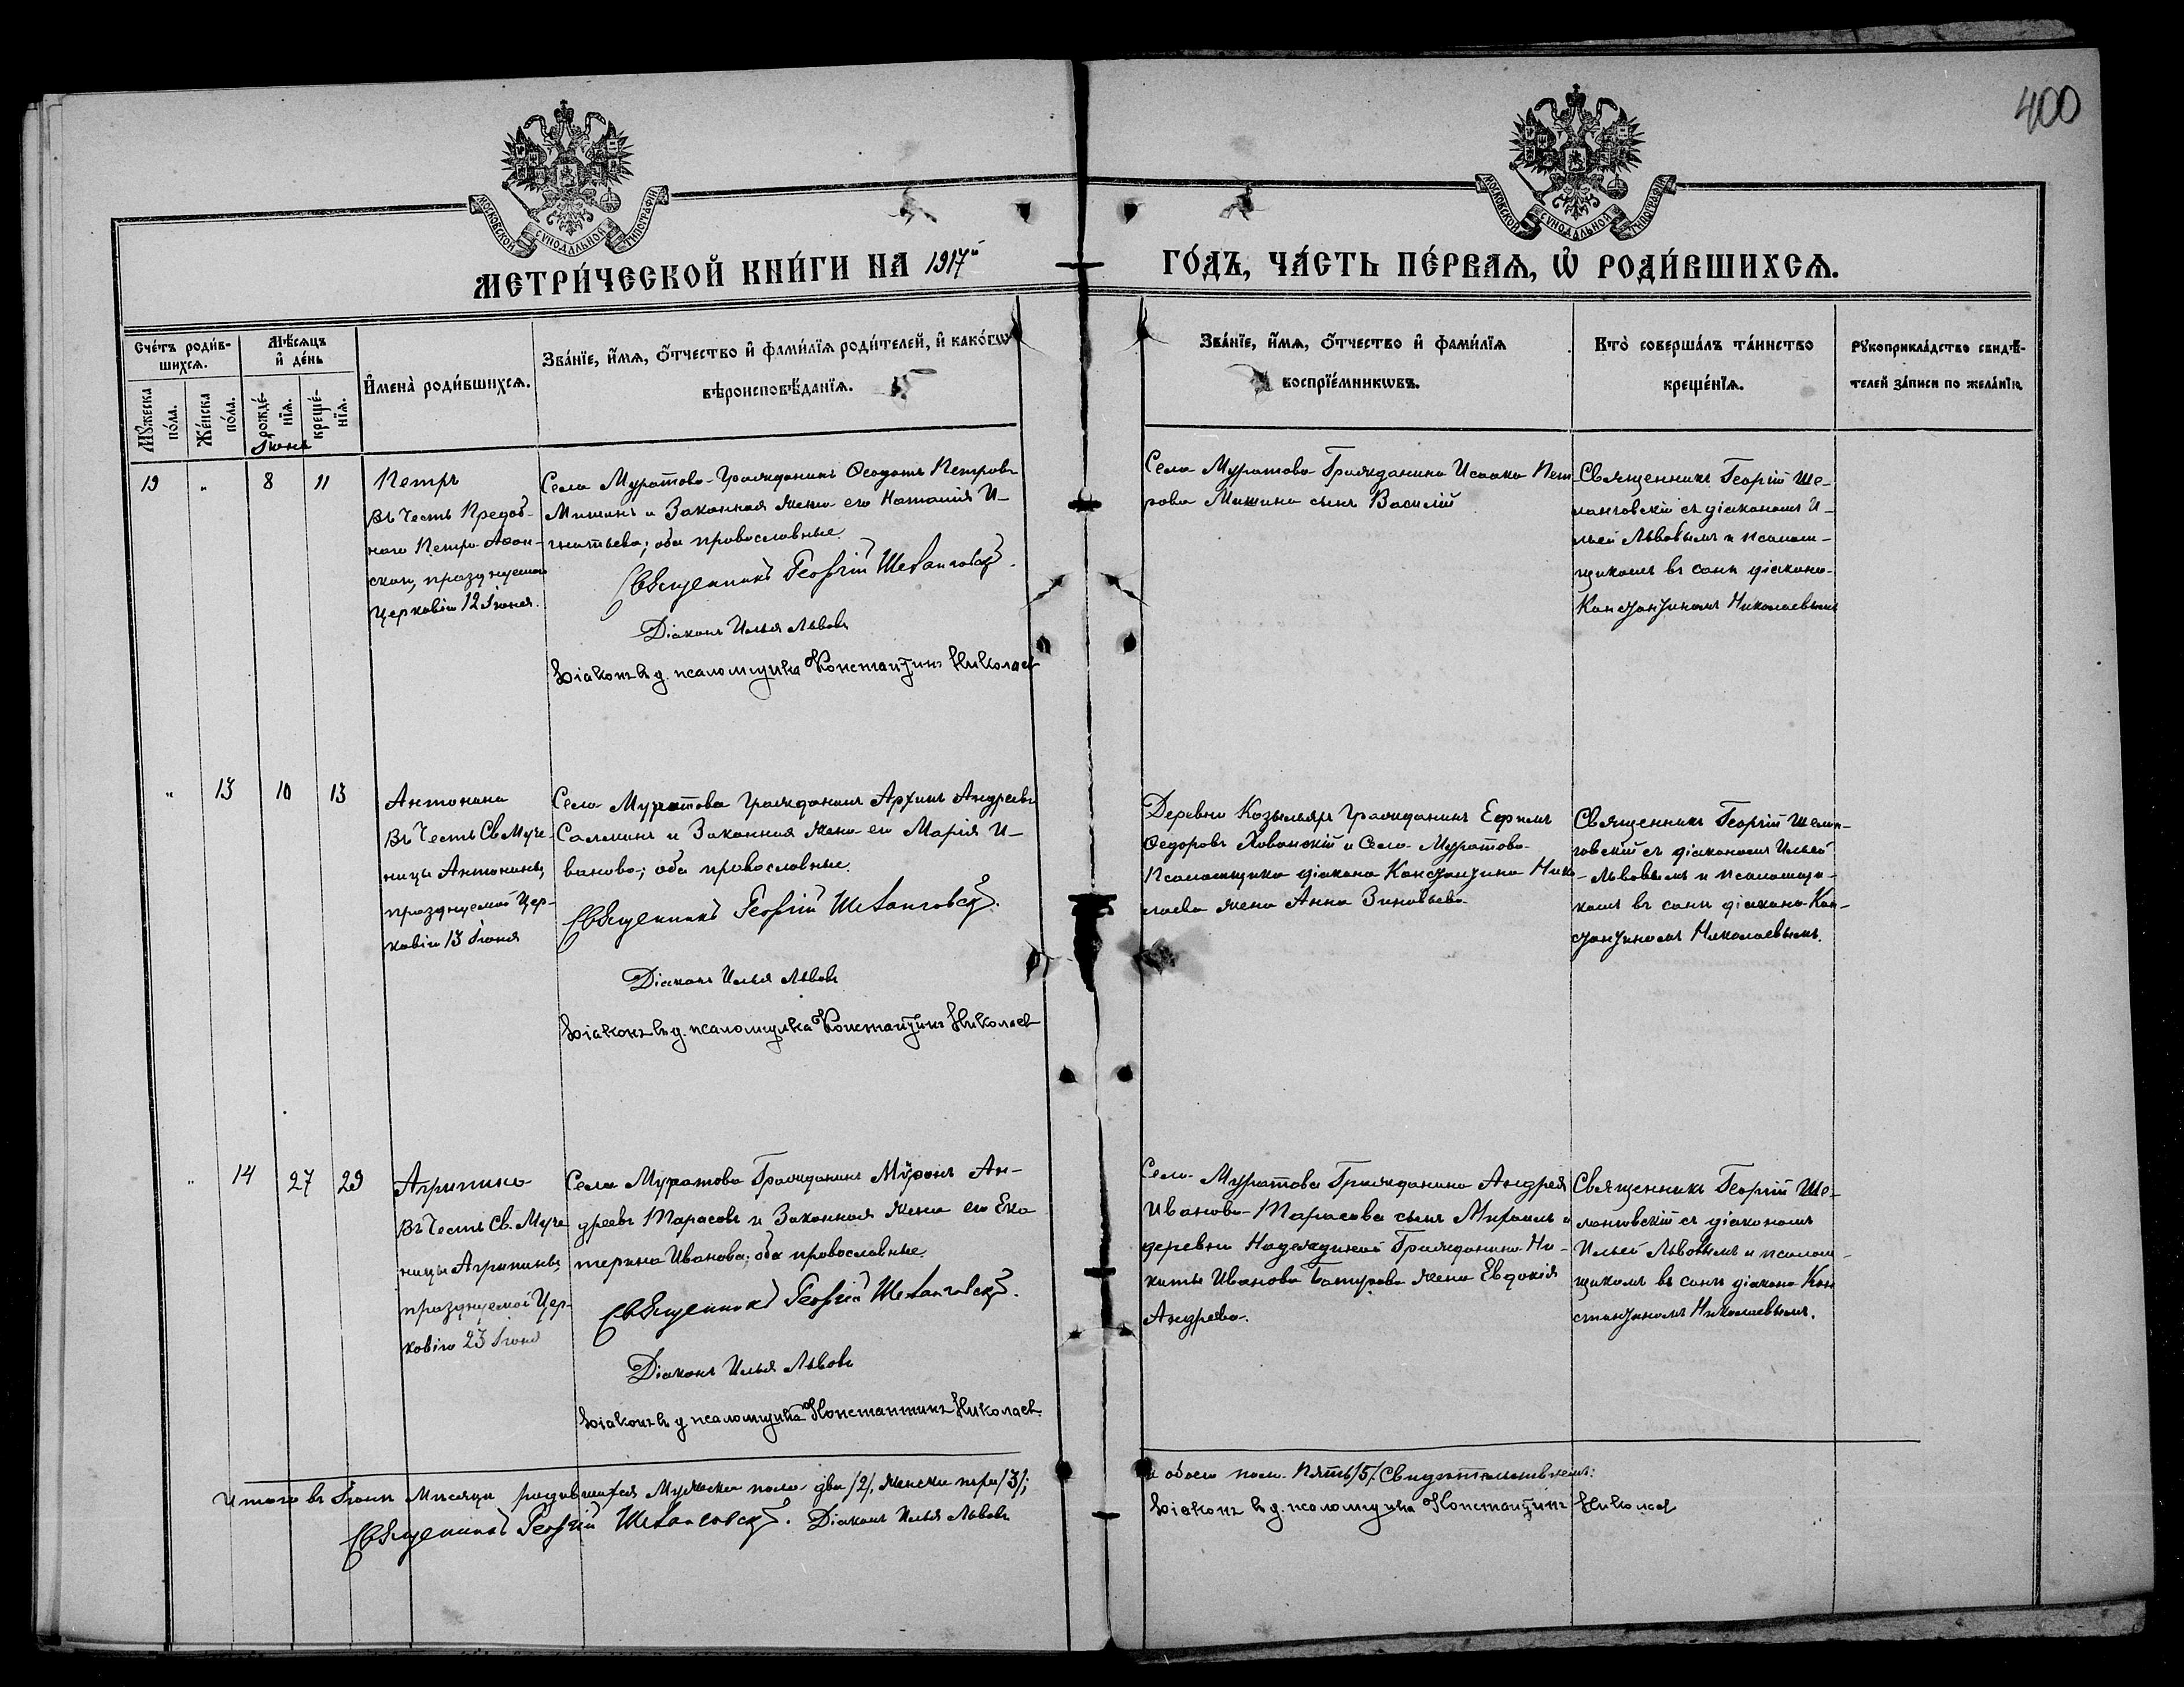 400
МОСКОВСКОЙ СУНОДАЛЬНОЙ ТИПОГРАФІИ
МОСКОВСКОЙ СУНОДАЛЬНОЙ ТИПОГРАФІИ
МЕТРИ́ЧЕСКОЙ КНИ́ГИ НА 1917й
ГО́ДЪ, ЧА́СТЬ ПЕ́РВАѦ, Ѡ РОДИ́ВШИХСѦ.
Сче́тъ роди́в-
шихсѧ.
Мѣ́сѧцъ
и де́нь
Мꙋ́жеска
по́ла.
Же́нска
по́ла.
рожде́-
нїѧ.
креще́-
нїѧ.
Имена̀ роди́вшихсѧ.
Зва́нїе, и́мѧ, о́тчество и фами́лїѧ роди́телей, и како́гѡ
вѣроисповѣ́данїѧ.
Зва́нїе, и́мѧ, о́тчество и фами́лїѧ
воспрїе́мникѡвъ.
Кто̀ соверша́лъ та́инство
креще́нїѧ.
Рꙋкоприкла́дство свидѣ́-
телей за́писи по жела́нїю.
Іюня
19 " 8 11
Петръ
Въ Честь Препод-
наго Петра Афон-
скаго, празднуемаго
Церковію 12 Іюня.
Села Муратова Гражданинъ Ѳеодотъ Петровъ
Мишинъ и Законная жена его Наталія И-
гнатьева; оба православные.
Священникъ Георгій Шеланговскій.
Діаконъ Илья Львовъ
Діаконъ в д. псаломщика Константинъ Николаев
Села Муратова Гражданина Исаака Пет
рова Мишина сынъ Василій
Священникъ Георгій Ше-
ланговскій съ діакономъ И-
льей Львовымъ и псалом-
щикомъ въ санѣ діакона
Константиномъ Николаевымъ
" 13 10 13
Антонина
Въ Честь Св Муче-
ницы Антонины,
празднуемой Цер-
ковію 13 Іюня
Села Муратова Гражданинъ Архипъ Андреевъ
Салминъ и Законная жена его Марія И-
ванова; оба православные.
Священникъ Георгій Шеланговскій.
Діаконъ Илья Львовъ
Діаконъ в д. псаломщика Константинъ Николаев
Деревни Козыльяръ Гражданинъ Ефимъ
Ѳедоровъ Хованскій и Села Муратова
Псаломщика діакона Константина Нико
лаева жена Анна Зиновьева
Священникъ Георгій Шелан-
говскій съ діакономъ Ильей
Львовымъ и псаломщи-
комъ въ санѣ діакона Кон-
стантиномъ Николаевымъ.
" 14 27 29
Агрипина
Въ Честь Св. Муче
ницы Агрипины,
празднуемой Цер-
ковію 23 Іюня
Села Муратова Гражданинъ Мѵронъ Ан-
дреевъ Тарасовъ и Законная жена его Ека
терина Иванова; оба православные.
Священникъ Георгій Шеланговскій.
Діаконъ Илья Львовъ
Діаконъ в д псаломщика Константинъ Николаев.
Села Муратова Гражданина Андрея
Иванова Тарасова сынъ Михаилъ и
деревни Надеждиной Гражданина Ни-
киты Иванова Батурова жена Евдокія
Андрева.
Священникъ Георгій Ше-
ланговскій съ діакономъ
Ильей Львовымъ и псалом-
щикомъ въ санѣ діакона Кон
стантиномъ Николаевымъ.
Итого въ Іюнѣ Мѣсяцѣ родившихся Мужеска пола два /2/, женска три /3/;
а обоего пола Пять /5/. Свидѣтельствуемъ:
Священникъ Георгій Шеланговскій. Діаконъ Илья Львовъ
Діаконъ в д. псаломщика Константинъ Николаев